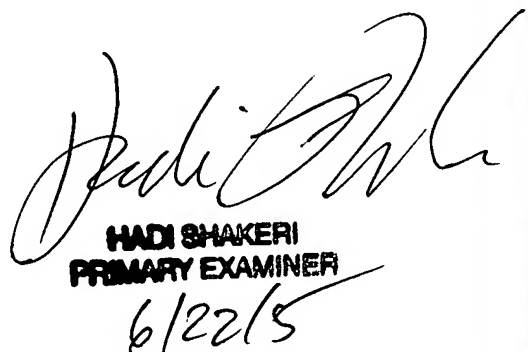 Hadi
HADI SHAKERI
PRIMARY EXAMINER
6/22/5